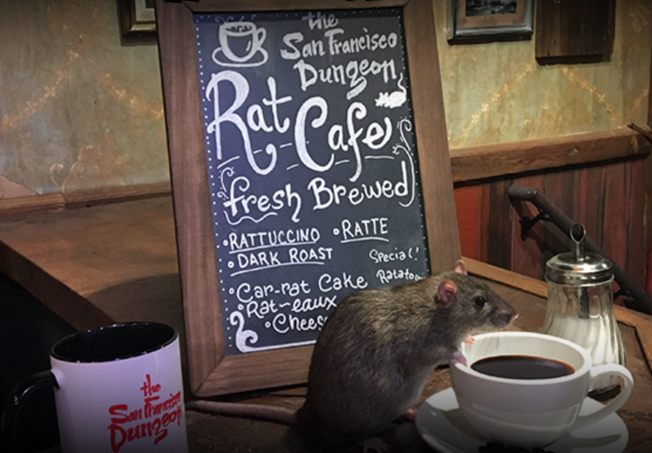 the
San Francisco
Dungeon
Rat
Cafe
fresh Brewed
•RATTUCCINO •RATTE
•DARK ROAST
Special!
•Car-rat Cake
•Rat-eaux
the
San Francisco
Dungeon